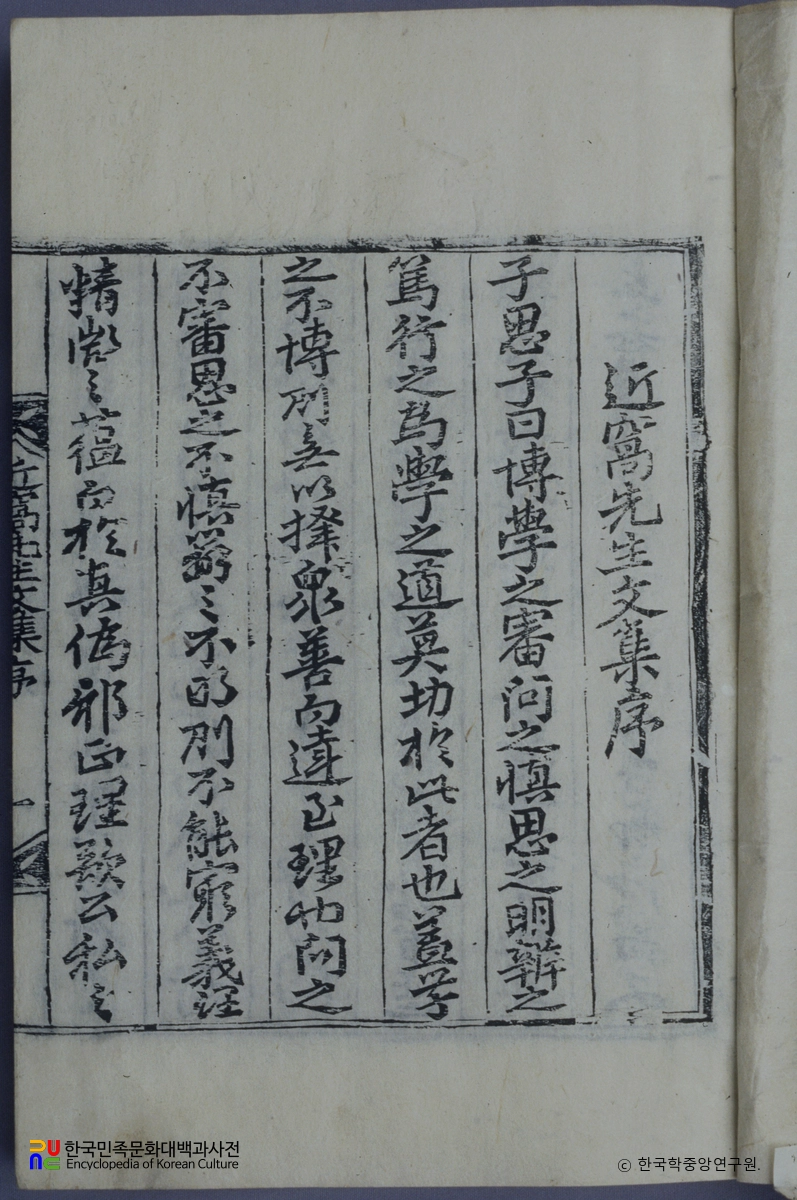 近窩先生文集序
子思子曰博學之審問之愼思之明辨之
篤行之爲學之道莫切於此者也蓋學
之不博則無以擇衆善而達至理也問之
不審思之不愼辨之不明則不能窮義理
精微之蘊而於眞僞邪正理欲公私之
近窩先生文集序
一
한국민족문화대백과사전
Encyclopedia of Korean Culture
ⓒ 한국학중앙연구원.